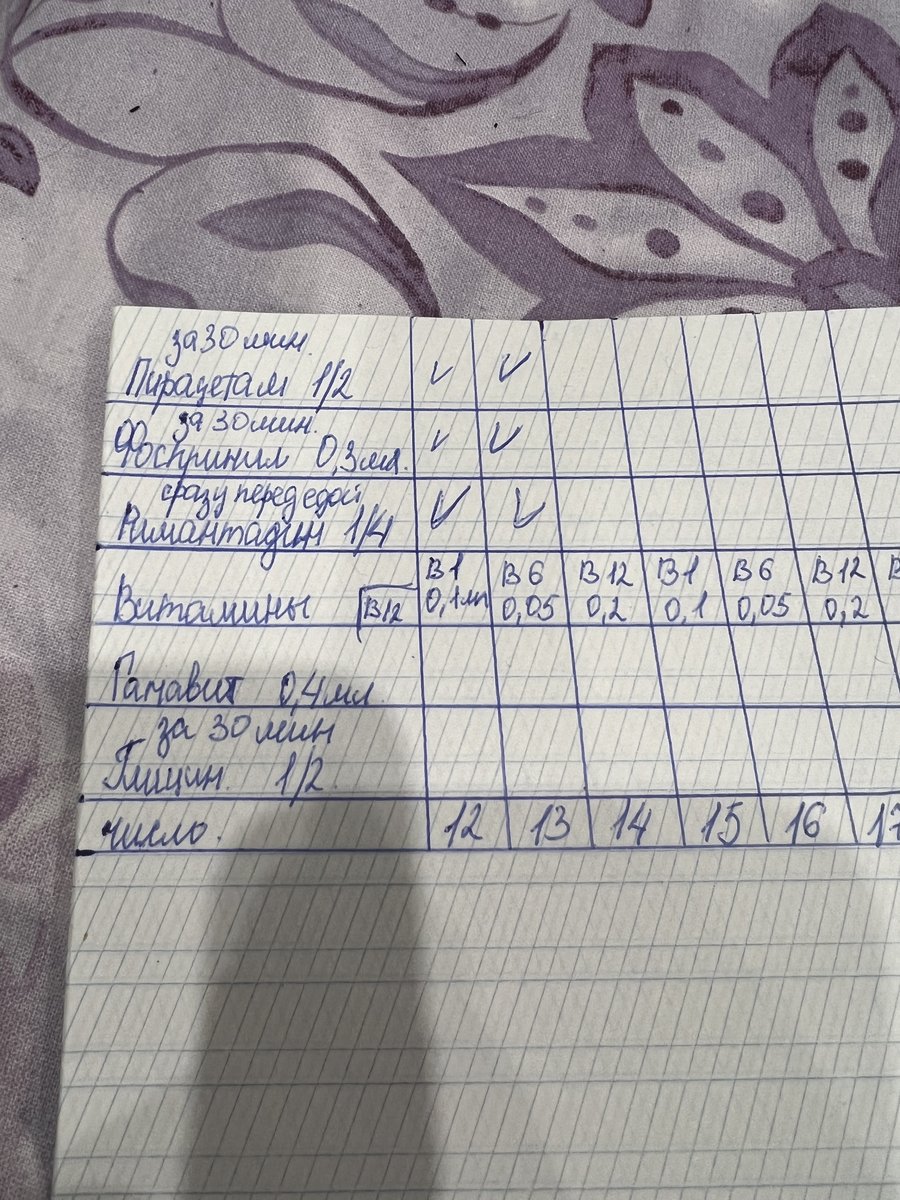 за 30 мин.
Пирацетам 1/2 ✓ ✓
за 30 мин.
Фоспринил 0,3мл. ✓ ✓
сразу перед едой
Римантадин 1/4 ✓ ✓
В1 В6 В12 В1 В6 В12 В
Витамины В12 0,1мл 0,05 0,2 0,1 0,05 0,2
Гамавит 0,4мл.
за 30 мин
Глицин. 1/2.
число. 12 13 14 15 16 17